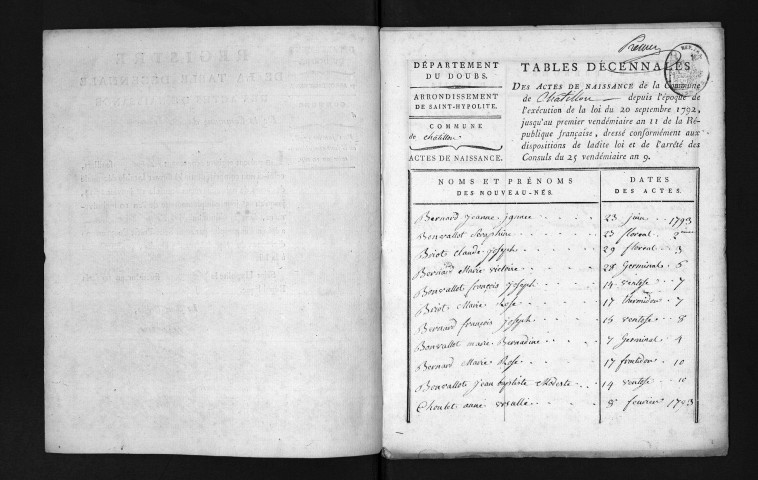 Premier
DÉPARTEMENT
DU DOUBS.
ARRONDISSEMENT
DE SAINT-HYPOLITE.
COMMUNE
de châtillon
ACTES DE NAISSANCE.
TABLES DÉCENNALES
DES ACTES DE NAISSANCE de la Commune
de Châtillon depuis l'époque de
l'exécution de la loi du 20 septembre 1792,
jusqu'au premier vendémiaire an 11 de la Ré-
publique française, dressé conformément aux
dispositions de ladite loi et de l'arrêté des
Consuls du 25 vendémiaire an 9.
NOMS ET PRÉNOMS
DES NOUVEAU-NÉS.
DATES
DES ACTES.
Bernard Jeanne ignace 23 juin 1793
Bonvallot Séraphine 23 floreal 2
Briot claude joseph 29 floreal 3
Bernard Marie victoire 28 Germinal 6
Bonvallot françois joseph 14 ventose 7
Briot Marie Rose 17 thermidor 7
Bernard françois joseph 15 ventose 8
Bonvallot marie Bernadine 7 Germinal 4
Bernard Marie Rose 17 fructidor 10
Bonvallot jean baptiste Modeste 14 ventose 10
Choulet anne ursulle 8 fevrier 1793